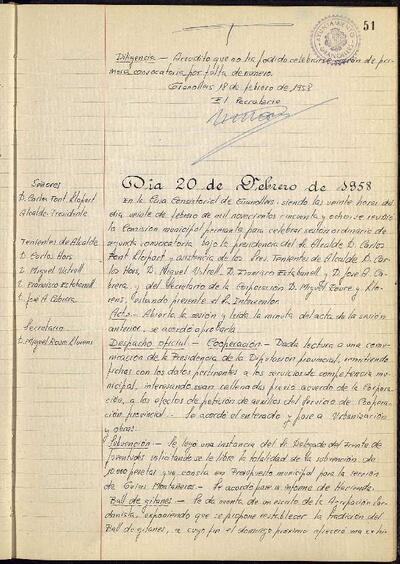 51
AYUNTAMIENTO GRANOLLERS
Diligencia — Acredito que no ha podido celebrarse sesión de pri-
mera convocatoria por falta de número.
Granollers 18 de febrero de 1958
El Secretario
Día 20 de Febrero de 1958
Señores
D. Carlos Font Llopart
Alcalde-Presidente
Tenientes de Alcalde
D. Carlos Hors
D. Miguel Ustrell
D. Francisco Estabanell
D. José A. Cabrera
Secretario
D. Miguel Roure Llorens
En la Casa Consistorial de Granollers, siendo las veinte horas del
día veinte de febrero de mil novecientos cincuenta y ocho, se reunió
la Comisión municipal permanente para celebrar sesión ordinaria de
segunda convocatoria, bajo la presidencia del Sr. Alcalde D. Carlos
Font Llopart y asistencia de los Sres. Tenientes de Alcalde D. Car-
los Hors, D. Miguel Ustrell, D. Francisco Estabanell y D. José A. Ca-
brera, y del Secretario de la Corporación D. Miguel Roure y Llo-
rens, estando presente el Sr. Interventor.
Acta — Abierta la sesión y leída la minuta del acta de la sesión
anterior, se acordó aprobarla.
Despacho oficial — Cooperación — Dada lectura a una comu-
nicación de la Presidencia de la Diputación provincial, remitiendo
fichas con los datos pertinentes a los servicios de competencia mu-
nicipal, interesando sean rellenadas previo acuerdo de la Corpora-
ción, a los efectos de petición de auxilios del Servicio de Coopera-
ción provincial. — Se acordó el enterado y pase a Urbanización
y obras.
Subvención — Se leyó una instancia del Sr. Delegado del Frente de
Juventudes solicitando se le libre la totalidad de la subvención de
10.000 pesetas que consta en Presupuesto municipal para la sección
de Guías Montañeros. — Se acordó pase a informe de Hacienda.
Ball de gitanes — Se da cuenta de un escrito de la Agrupación Sar-
danista, exponiendo que se propone restablecer la tradición del
Ball de gitanes, a cuyo fin el domingo próximo ofrecerá una exhi-